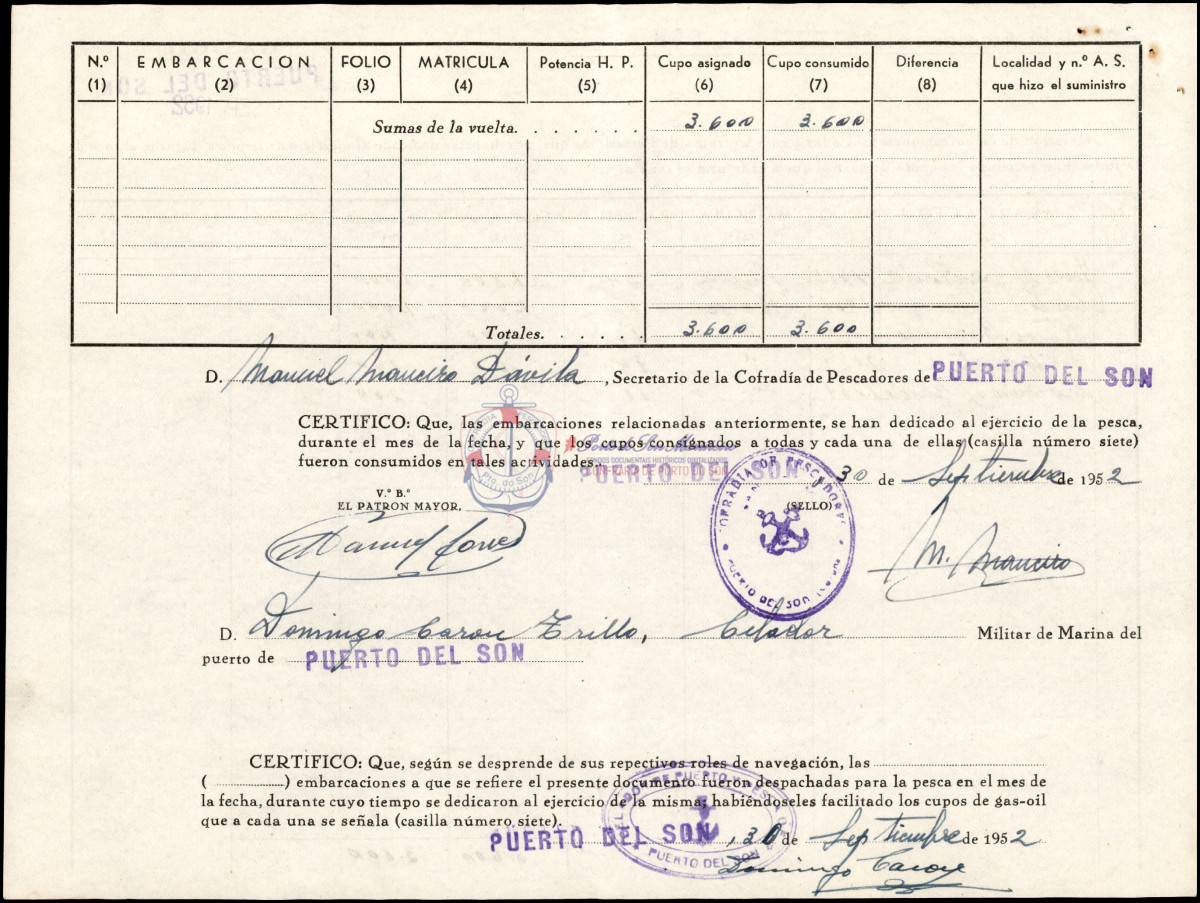 N.º EMBARCACION FOLIO MATRICULA Potencia H. P. Cupo asignado Cupo consumido Diferencia Localidad y n.º A. S.
(1) (2) (3) (4) (5) (6) (7) (8) que hizo el suministro
Sumas de la vuelta. . . . . . . 3.600 3.600
Totales. . . . . . 3.600 3.600
D. Manuel Maneiro Dávila, Secretario de la Cofradía de Pescadores de PUERTO DEL SON
CERTIFICO: Que, las embarcaciones relacionadas anteriormente, se han dedicado al ejercicio de la pesca,
durante el mes de la fecha, y que los cupos consignados a todas y cada una de ellas (casilla número siete)
fueron consumidos en tales actividades.
PUERTO DEL SON, 30 de Septiembre de 1952
V.º B.º
EL PATRON MAYOR,
(SELLO)
COFRADIA DE PESCADORES
PUERTO DEL SON
Manuel
M. Maneiro
FONDOS DOCUMENTALES HISTÓRICOS DIGITALIZADOS
COFRADÍA DE PORTO DO SON
Pto. do Son
D. Domingo Carou Trillo, Celador Militar de Marina del
puerto de PUERTO DEL SON
CERTIFICO: Que, según se desprende de sus repectivos roles de navegación, las
( ) embarcaciones a que se refiere el presente documento fueron despachadas para la pesca en el mes de
la fecha, durante cuyo tiempo se dedicaron al ejercicio de la misma; habiéndoseles facilitado los cupos de gas-oil
que a cada una se señala (casilla número siete).
PUERTO DEL SON, 30 de Septiembre de 1952
PUERTO DEL SON
Domingo Carou